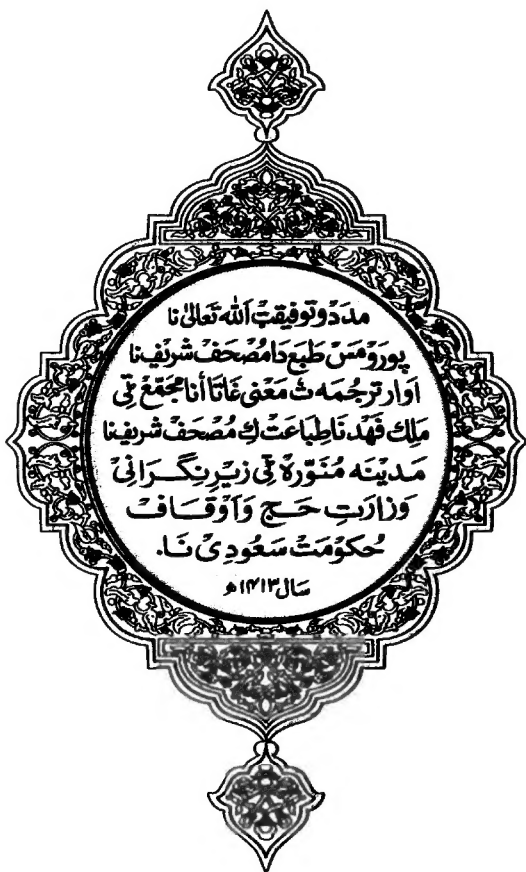 مدَد و توفیقتْ اَللّٰه تَعَالیٰ نا
پورَو مَسْ طبَع دَا مُصْحَفْ شرِیْف نا
اَوار ترجُمَه ثْ مَعْنٰی غَاتَا أنا مُجَمَّعْ ٹی
مَلِك فَهْد نَا طِبَاعَتْ كِ مُصْحَفْ شرِیف نا
مَدِیْنَه مُنَوَّرَهْ ٹی زیْرِ نِگْرَانیْ
وَزارَتِ حَج وَاَوْقَافْ
حُکوْمَتْ سَعُودِیْ نَا.
سَال ١٤١٣ھ